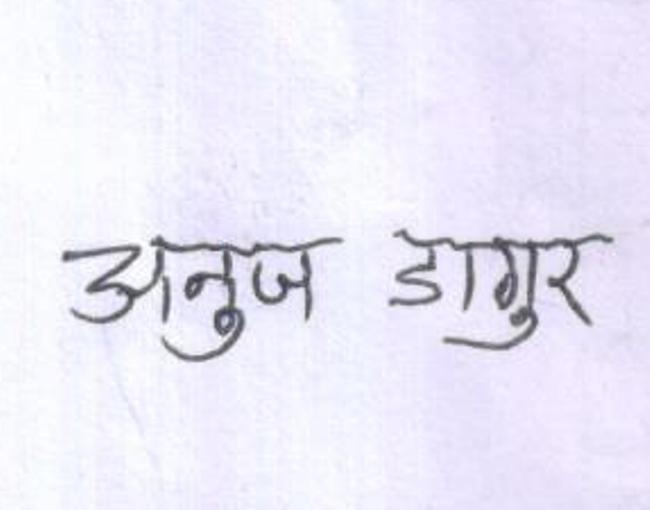 अनुज डागुर